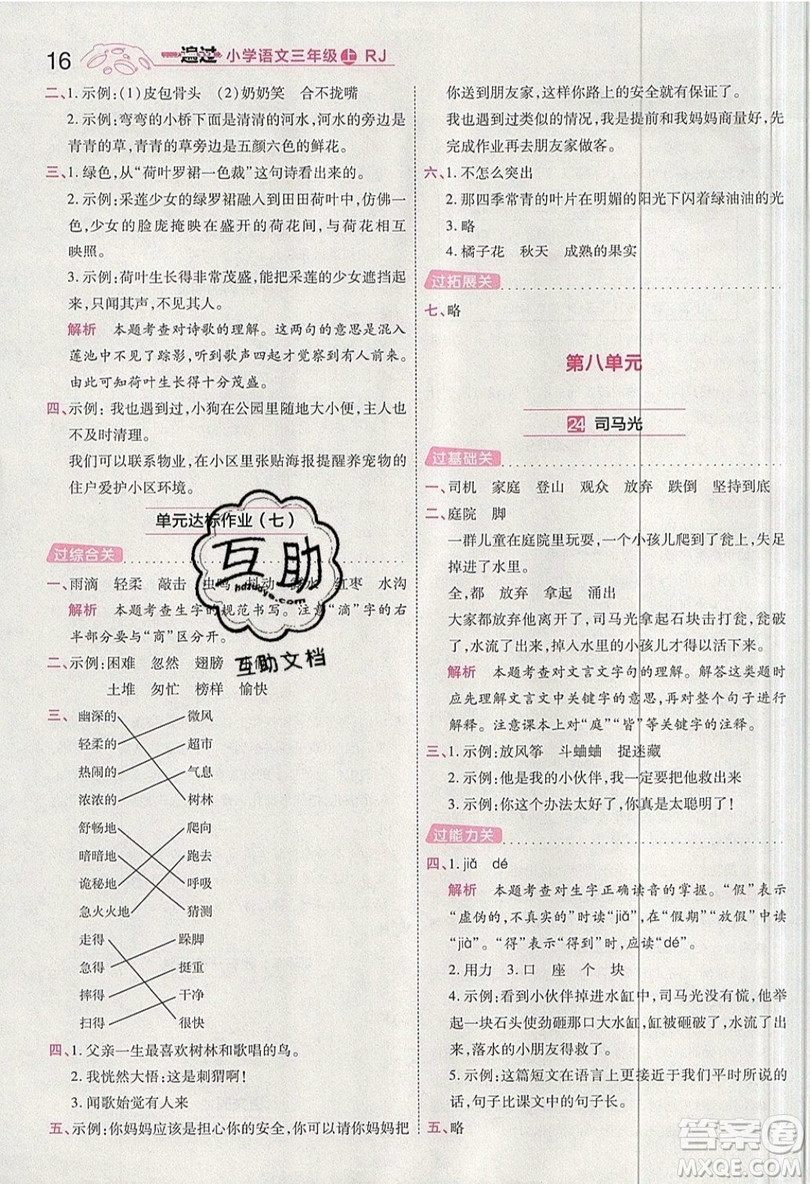 16 一遍过 小学语文三年级 上 RJ
二、1. 示例：(1)皮包骨头　(2)奶奶笑　合不拢嘴
2. 示例：弯弯的小桥下面是清清的河水，河水的旁边是
青青的草，青青的草旁边是五颜六色的鲜花。
三、1. 绿色，从“荷叶罗裙一色裁”这句诗看出来的。
2. 示例：采莲少女的绿罗裙融入田田荷叶中，仿佛一
色，少女的脸庞掩映在盛开的荷花间，与荷花相互
映照。
3. 示例：荷叶生长得非常茂盛，能把采莲的少女遮挡起
来，只闻其声，不见其人。
解析　本题考查对诗歌的理解。这两句的意思是混入
莲池中不见了踪影，听到歌声四起才觉察到有人前
来。由此可知荷叶生长得十分茂盛。
四、示例：我也遇到过，小狗在公园里随地大小便，主人也
不及时清理。
我们可以联系物业，在小区里张贴海报提醒养宠物的
住户爱护小区环境。
单元达标作业（七）
过综合关
一、雨滴　轻柔　敲击　虫鸣　抖动　　水　红枣　水沟
解析　本题考查生字的规范书写。注意“滴”字的右
半部分要与“商”区分开。
二、示例：困难　忽然　翅膀
土堆　匆忙　榜样　愉快
三、幽深的　微风
轻柔的　超市
热闹的　气息
浓浓的　树林
舒畅地　爬向
暗暗地　跑去
诡秘地　呼吸
急火火地　猜测
走得　跺脚
急得　挺重
摔得　干净
扫得　很快
四、1. 父亲一生最喜欢树林和歌唱的鸟。
2. 我恍然大悟：这是刺猬啊！
3. 闻歌始觉有人来
五、示例：你妈妈应该是担心你的安全，你可以请你妈妈把
你送到朋友家，这样你路上的安全就有保证了。
我也遇到过类似的情况，我是提前和我妈妈商量好，先
完成作业再去朋友家做客。
六、1. 不怎么突出
2. 那四季常青的叶片在明媚的阳光下闪着绿油油的光
3. 略
4. 橘子花　秋天　成熟的果实
过拓展关
七、略
第八单元
24 司马光
过基础关
一、司机　家庭　登山　观众　放弃　跌倒　坚持到底
二、庭院　脚
一群儿童在庭院里玩耍，一个小孩儿爬上了瓮，失足
掉进了水里。
全，都　放弃　拿起　涌出
大家都放弃他离开了，司马光拿起石块击打瓮，瓮破
了，水流了出来，掉入水里的小孩儿得以活了下来。
解析　本题考查对文言文字句的理解。解答本题时
应先理解文言文中关键字的意思，再连起来疏通文
句。注意课本上对“庭”“皆”等关键字的注释。
三、1. 示例：放风筝　斗蛐蛐　捉迷藏
2. 示例：他是我的小伙伴，我一定要把他救出来
3. 示例：你这个办法太好了，你真是太聪明了！
过能力关
四、1. jiǎ　dé
解析　本题考查对生字正确读音的掌握。“假”表示
“虚伪的，不真实的”时读“jiǎ”，在“假期”“放假”中读
“jià”。“得”表示“得到”时，应读“dé”。
2. 用力　3. 口　座　个　块
4. 示例：看到小伙伴掉进水缸中，司马光没有慌，他举
起一块石头使劲砸那口大水缸，水缸被砸破了，水流了
出来，缸里的小朋友得救了。
5. 示例：这篇短文在语言上更口语化，更通俗易懂；句
子长短也不一样，短文中的句子比课文中的句子长。
五、略
互助
hdzuoye.com
互助文档
答案圈
MXQE.COM